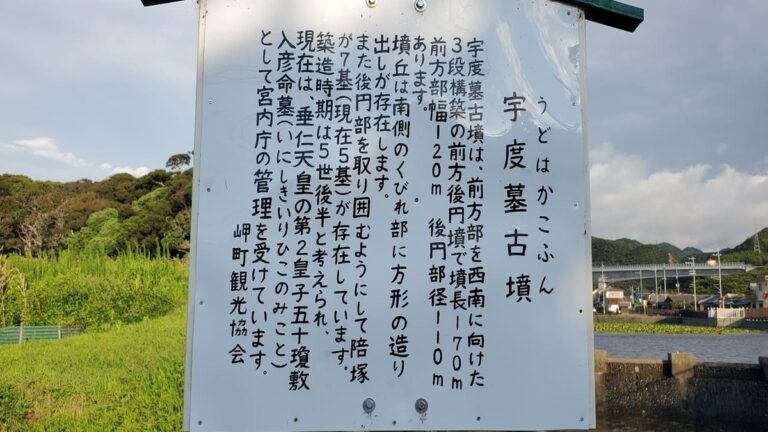 うどはかこふん
宇度墓古墳
宇度墓古墳は、前方部を西南に向けた
３段構築の前方後円墳で墳長１７０ｍ
前方部幅１２０ｍ　後円部径１１０ｍ
あります。
墳丘は南側のくびれ部に方形の造り
出しが存在します。
また後円部を取り囲むようにして陪塚
が７基（現在５基）が存在しています。
築造時期は５世後半と考えられ、
現在は、垂仁天皇の第２皇子五十瓊敷
入彦命墓（いにしきいりひこのみこと）
として宮内庁の管理を受けています。
岬町観光協会